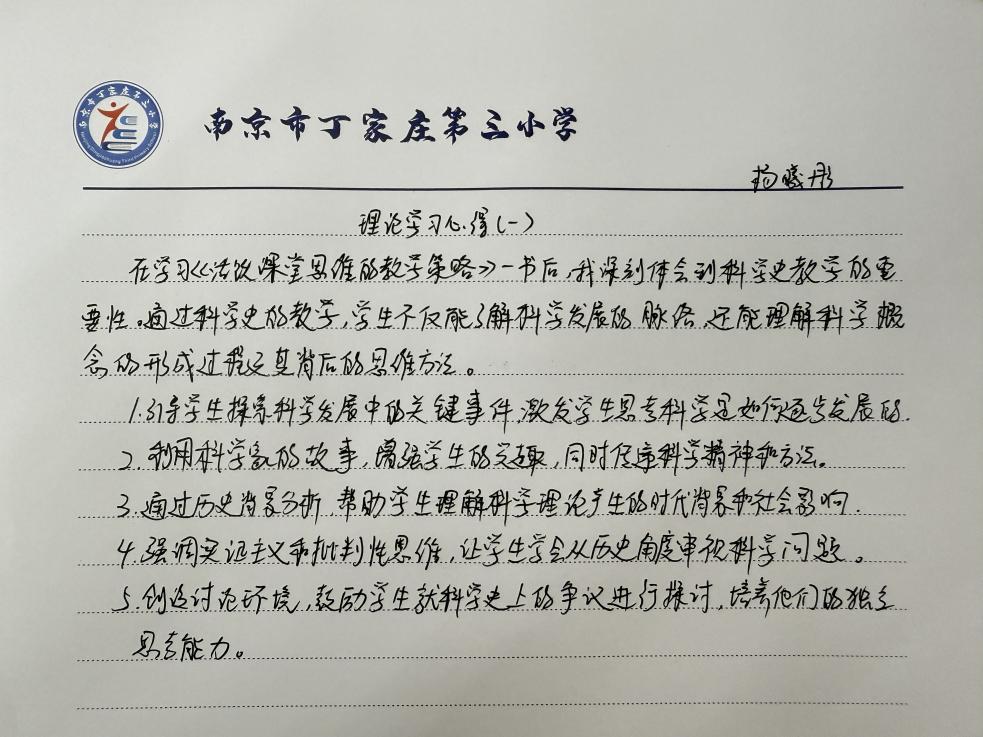 南京市丁家庄第三小学
南京市丁家庄第三小学
杨曦彤
理论学习心得(一)
在学习《活放课堂思维的教学策略》一书后,我深刻体会到科学史教学的重
要性。通过科学史的教学,学生不仅能了解科学发展的脉络,还能理解科学概
念的形成过程及其背后的思维方法。
1.引导学生探索科学发展中的关键事件,激发学生思考科学是如何逐步发展的.
2.利用科学家的故事,增强学生的兴趣,同时传递科学精神和方法。
3.通过历史背景分析,帮助学生理解科学理论产生的时代背景和社会影响.
4.强调实证主义和批判性思维,让学生学会从历史角度审视科学问题。
5.创造讨论环境,鼓励学生就科学史上的争议进行探讨,培养他们的独立
思考能力。